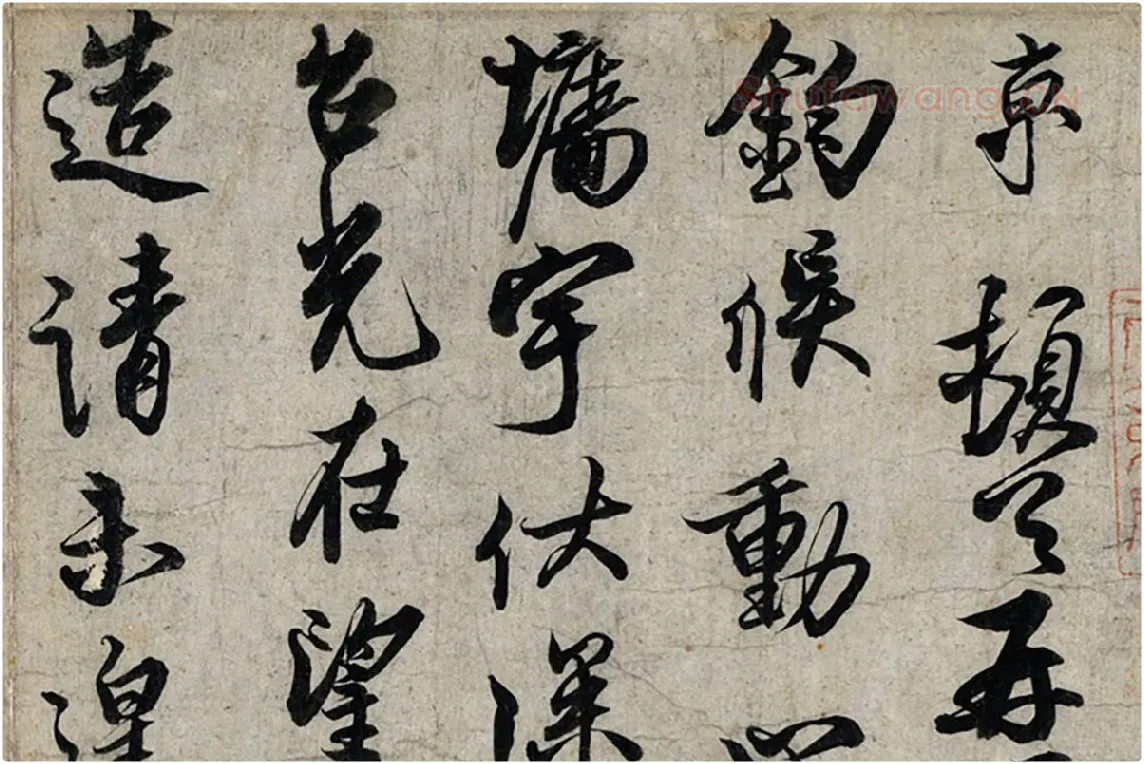 京頓首再
鈞候動止
墉宇伏深
台光在望
造請未遑
Shufawang.cn